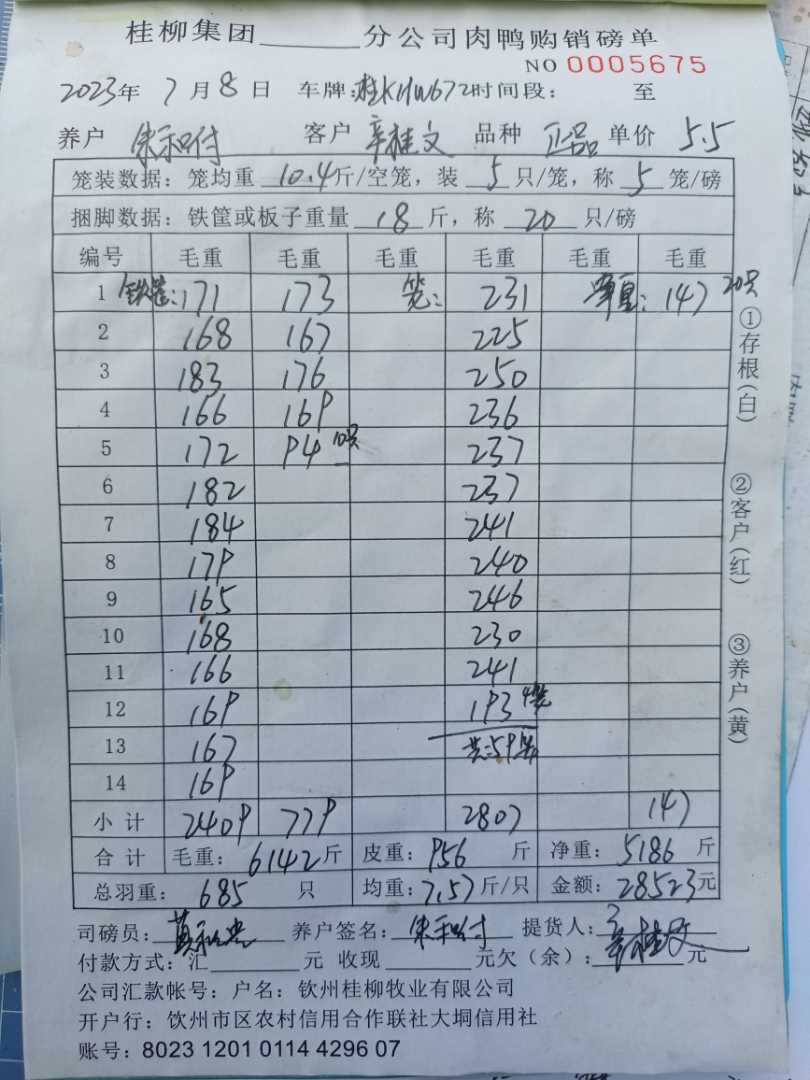 桂柳集团______分公司肉鸭购销磅单
NO 0005675
2023年 7月8日 车牌:桂KHW672时间段: 至
养户 朱和付 客户 辛桂文 品种 正品 单价 5.5
笼装数据:笼均重 10.4斤/空笼,装 5 只/笼,称 5 笼/磅
捆脚数据:铁筐或板子重量 18 斤,称 20 只/磅
编号 毛重 毛重 毛重 毛重 毛重 毛重
1 铁筐:171 173 笼: 231 单直: 147 20只
2 168 167 225
3 183 176 250
4 166 169 236
5 172 94 10只 237
6 182 237
7 184 241
8 179 240
9 165 246
10 168 230
11 166 241
12 169 193 4笼
13 167 共:59笼
14 169
小计 2409 779 2807 147
合计 毛重:6142斤 皮重:956 斤 净重:5186 斤
总羽重: 685 只 均重:7.57斤/只 金额:28523元
司磅员: 养户签名:朱和付 提货人:辛桂文
付款方式:汇______元 收现______元欠(余):______元
公司汇款帐号:户名:钦州桂柳牧业有限公司
开户行:饮州市区农村信用合作联社大垌信用社
账号:8023 1201 0114 4296 07
①存根(白)
②客户(红)
③养户(黄)